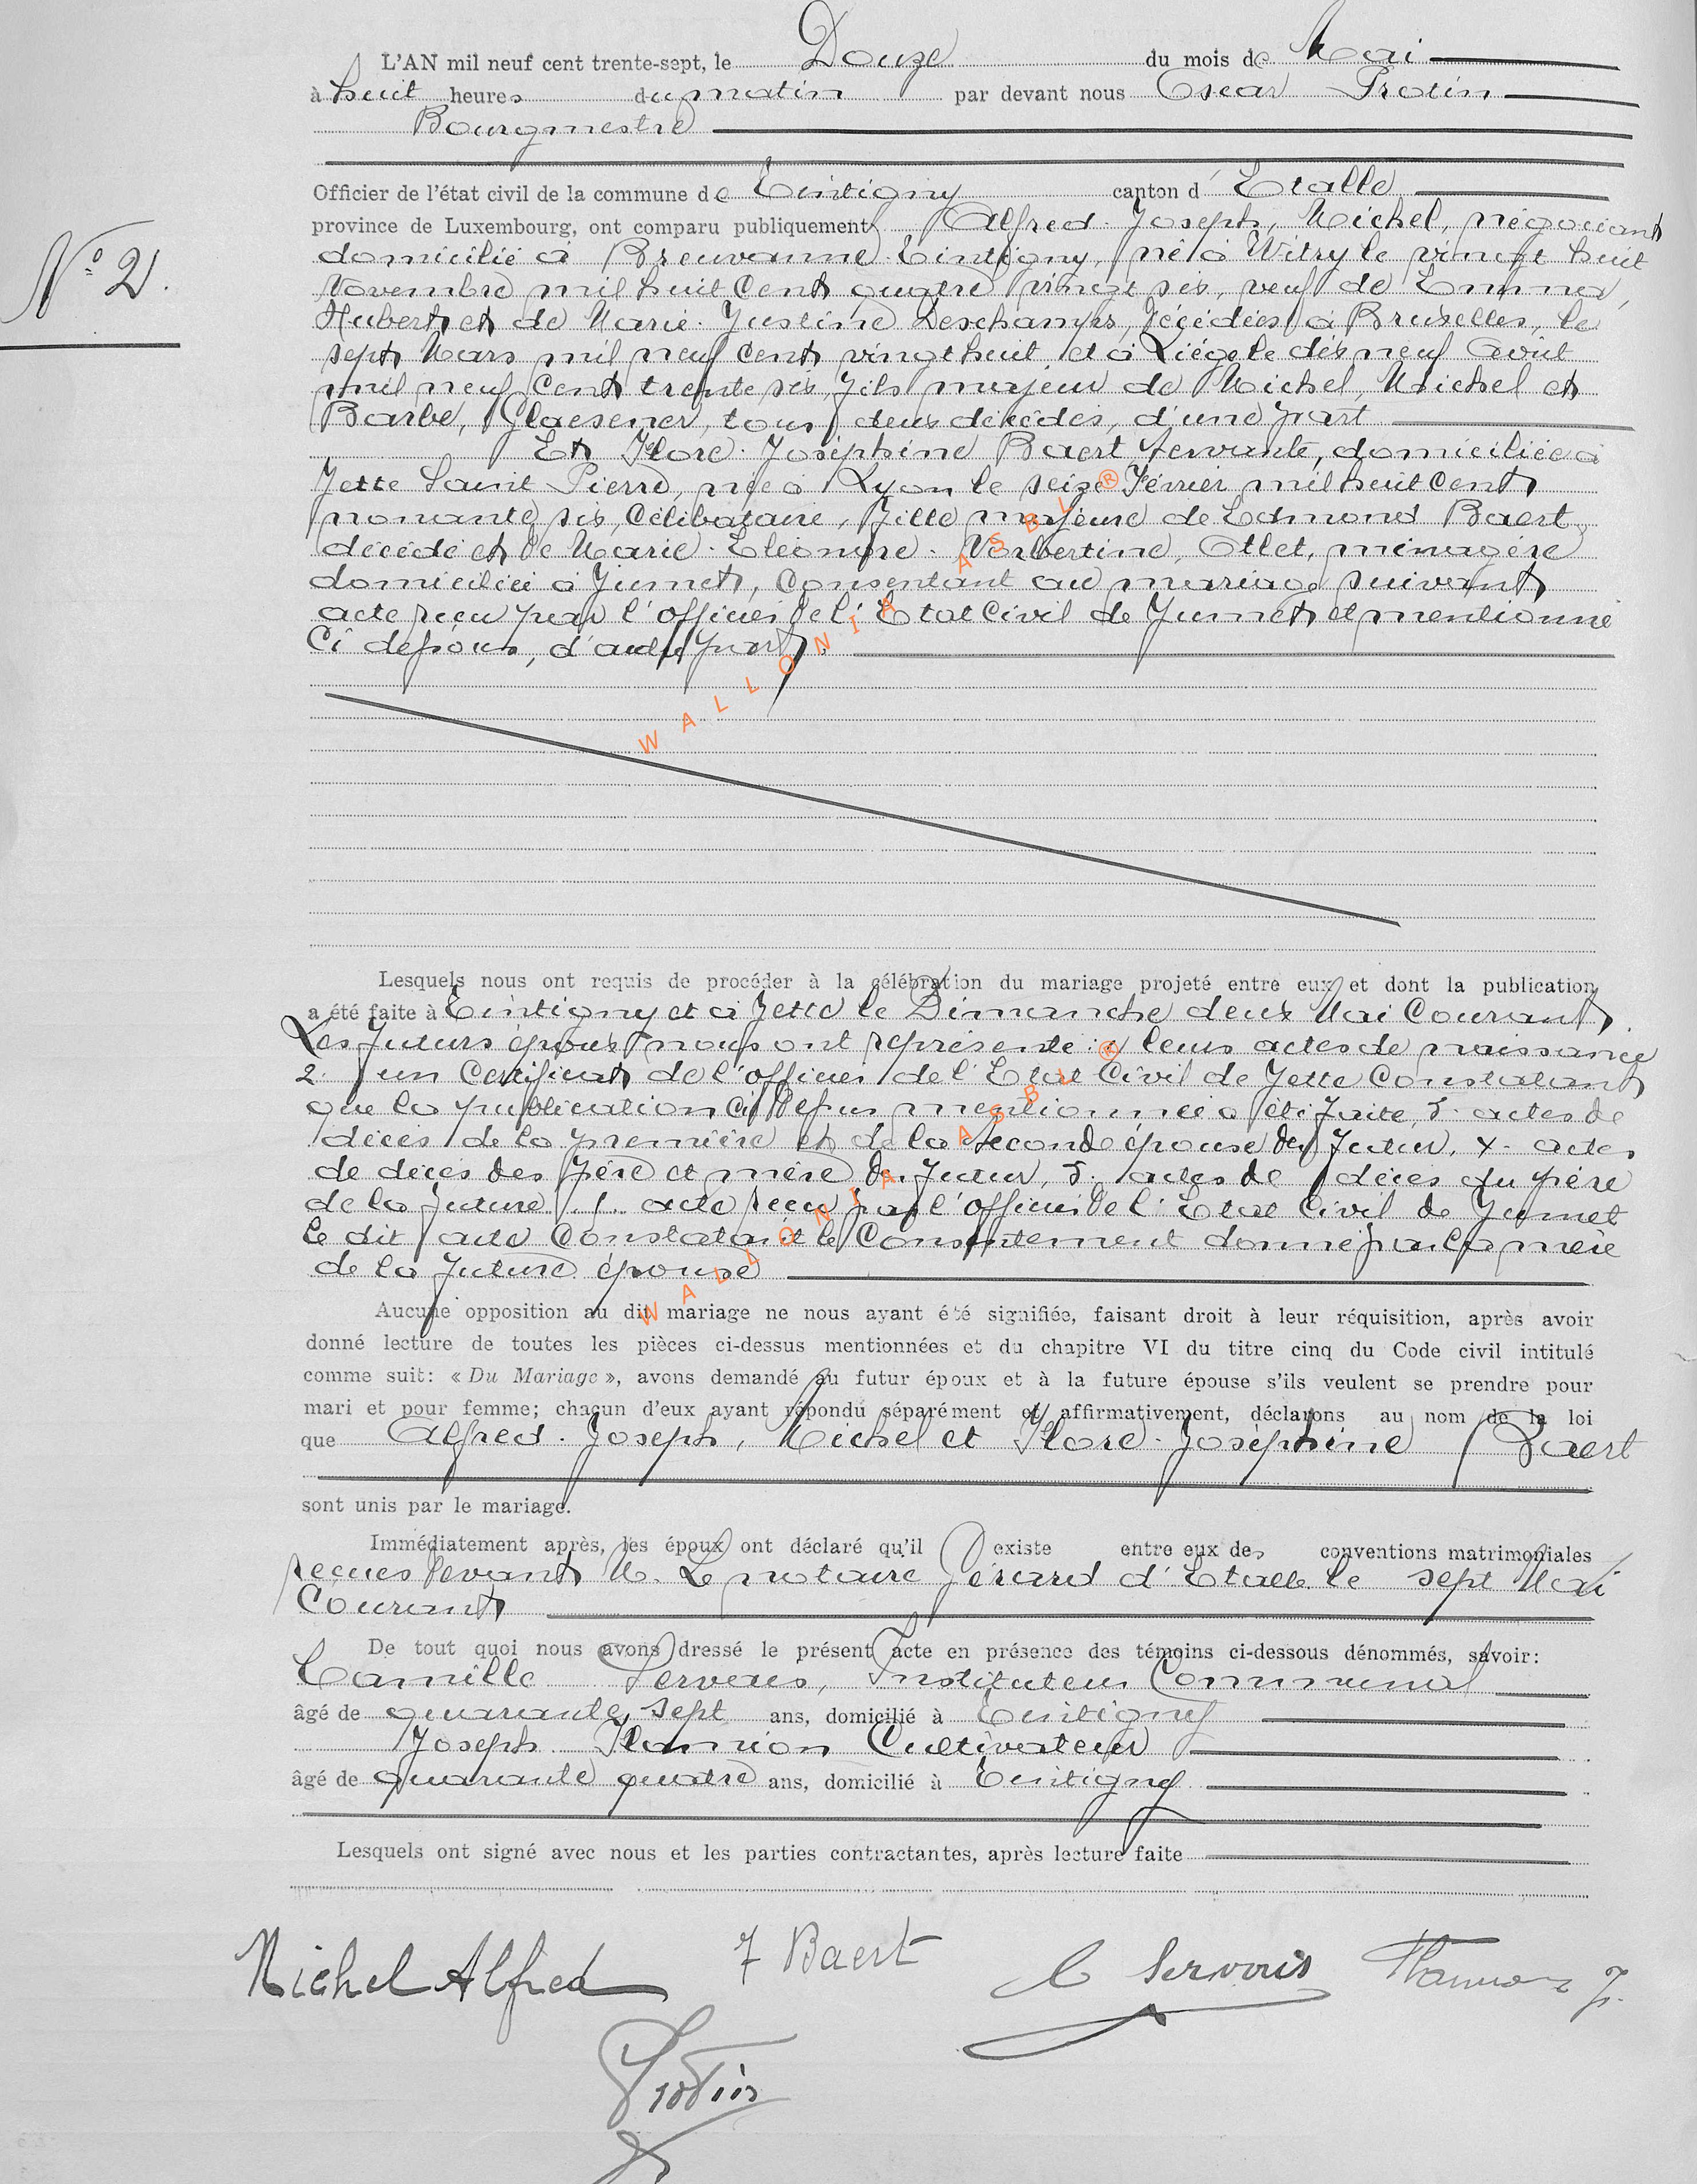 L'AN mil neuf cent trente-sept, le Douze du mois de Mai
à huit heures du matin par devant nous Oscar Protin
Bourgmestre
Officier de l'état civil de la commune de Tintigny canton d' Etalle
province de Luxembourg, ont comparu publiquement Alfred-Joseph, Michel, négociant
N° 2.
domicilié à Breuvanne-Tintigny, né à Witry le vingt huit
Novembre mil huit cent quatre vingt six, veuf de Emma,
Hubert et de Marie-Justine Deschamps, décédées à Bruxelles, le
sept Mars mil neuf cent vingt huit et à Liège le dix neuf Août
mil neuf cent trente six, fils majeur de Michel, Michel et
Barbe, Glaesener, tous deux décédés, d'une part
Et Flore-Joséphine Baert servante, domiciliée à
Jette Saint Pierre, née à Lyon le seize Février mil huit cent
nonante six, célibataire, fille majeure de Edmond Baert,
décédé et de Marie-Eléonore-Norbertine, Ottet, ménagère
domiciliée à Jumet, consentant au mariage suivant
acte reçu par l'officier de l'Etat Civil de Jumet et mentionné
ci dessous, d'autre part.
WALLONIA ASBL ®
Lesquels nous ont requis de procéder à la célébration du mariage projeté entre eux et dont la publication
a été faite à Tintigny et à Jette le Dimanche deux Mai Courant.
Les futurs époux nous ont représenté: leurs actes de naissance
2. un Certificat de l'officier de l'Etat Civil de Jette Constatant
que la publication ci dessus mentionnée a été faite, 3. actes de
décès de la première et de la seconde épouse du futur, 4. actes
de décès des père et mère du futur, 5. actes de décès du père
de la future acte reçu par l'officier de l'Etat Civil de Jumet
le dit acte Constatant le Consentement donné par la mère
de la future épouse
WALLONIA ASBL ®
Aucune opposition au dit mariage ne nous ayant été signifiée, faisant droit à leur réquisition, après avoir
donné lecture de toutes les pièces ci-dessus mentionnées et du chapitre VI du titre cinq du Code civil intitulé
comme suit: « Du Mariage », avons demandé au futur époux et à la future épouse s'ils veulent se prendre pour
mari et pour femme; chacun d'eux ayant répondu séparément et affirmativement, déclarons au nom de la loi
que Alfred-Joseph, Michel et Flore-Joséphine Baert
sont unis par le mariage.
Immédiatement après, les époux ont déclaré qu'il existe entre eux des conventions matrimoniales
reçues devant M. Le notaire Gérard d'Etalle le sept Mai
Courant
De tout quoi nous avons dressé le présent acte en présence des témoins ci-dessous dénommés, savoir:
Camille Servais, Instituteur Communal
âgé de quarante sept ans, domicilié à Tintigny
Joseph Hannion Cultivateur
âgé de quarante quatre ans, domicilié à Tintigny
Lesquels ont signé avec nous et les parties contractantes, après lecture faite
Michel Alfred F Baert C Servais J.
Protin